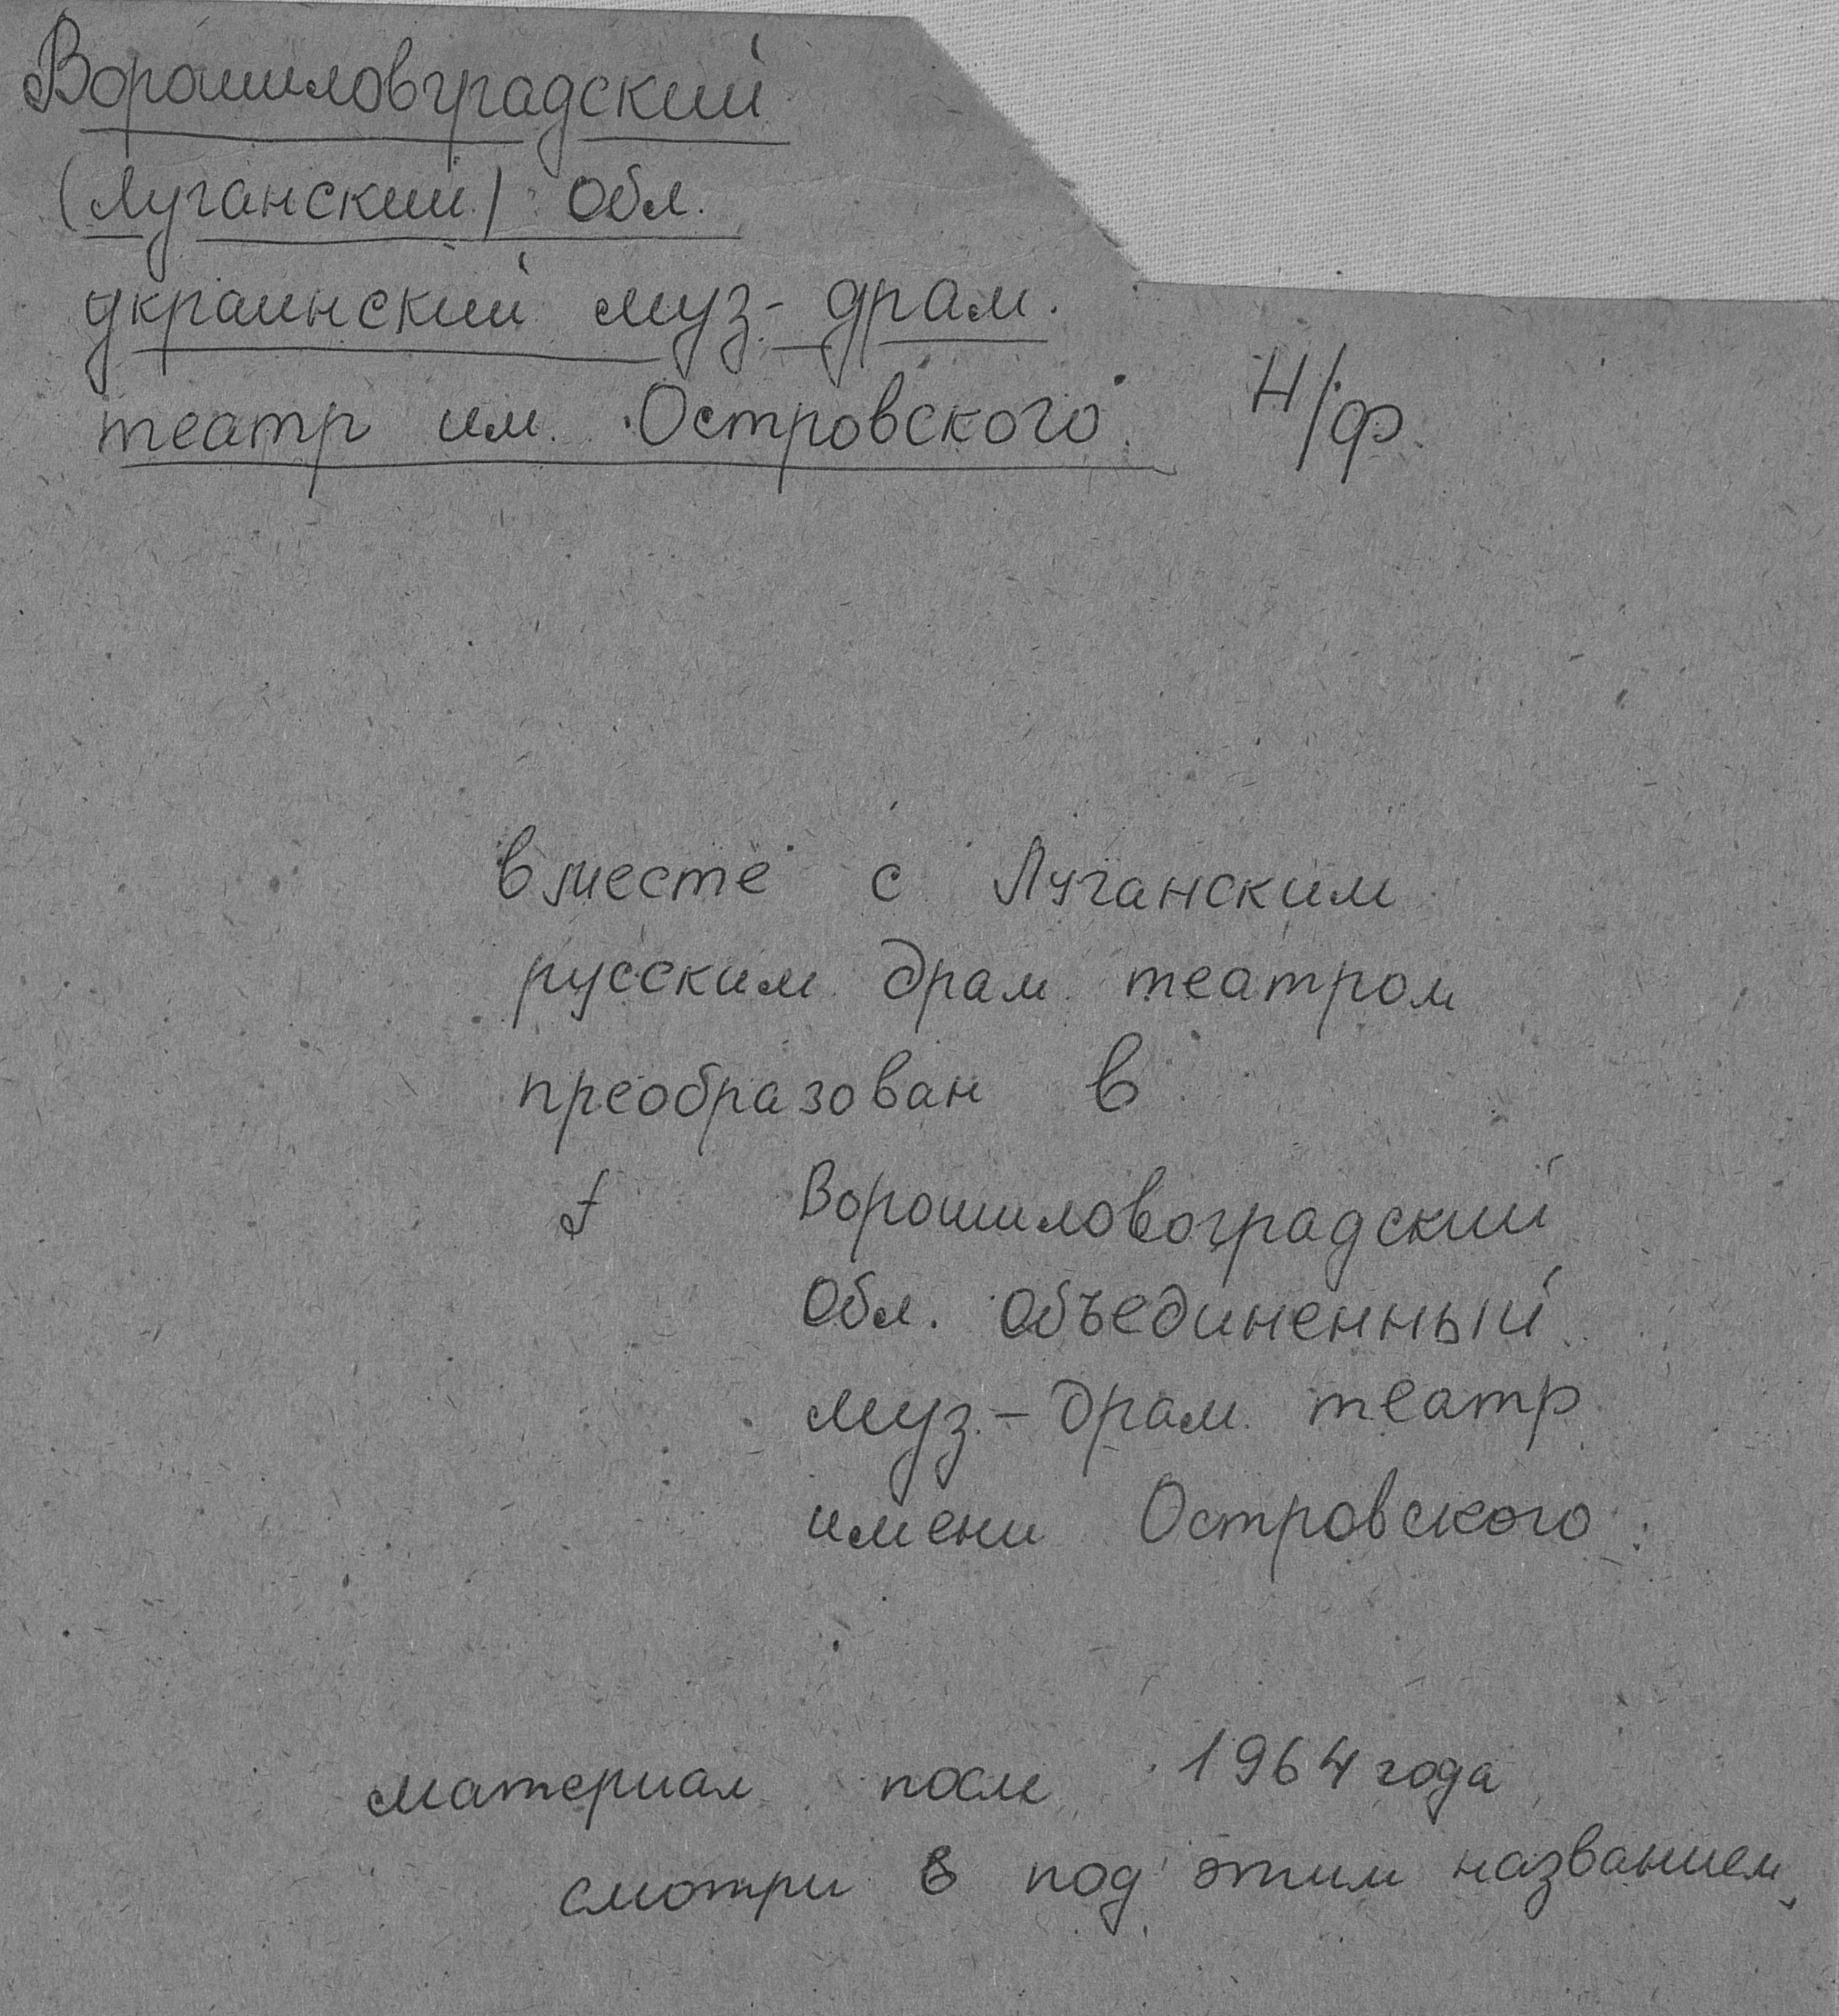 Ворошиловградский
(Луганский) Обл.
украинский муз-драм.
театр им. Островского. Н/ф.
вместе с Луганским
русским драм. театром
преобразован в
Ворошиловоградский
Обл. объединенный
муз.-драм. театр
имени Островского.
материал после 1964 года
смотри в под этим названием